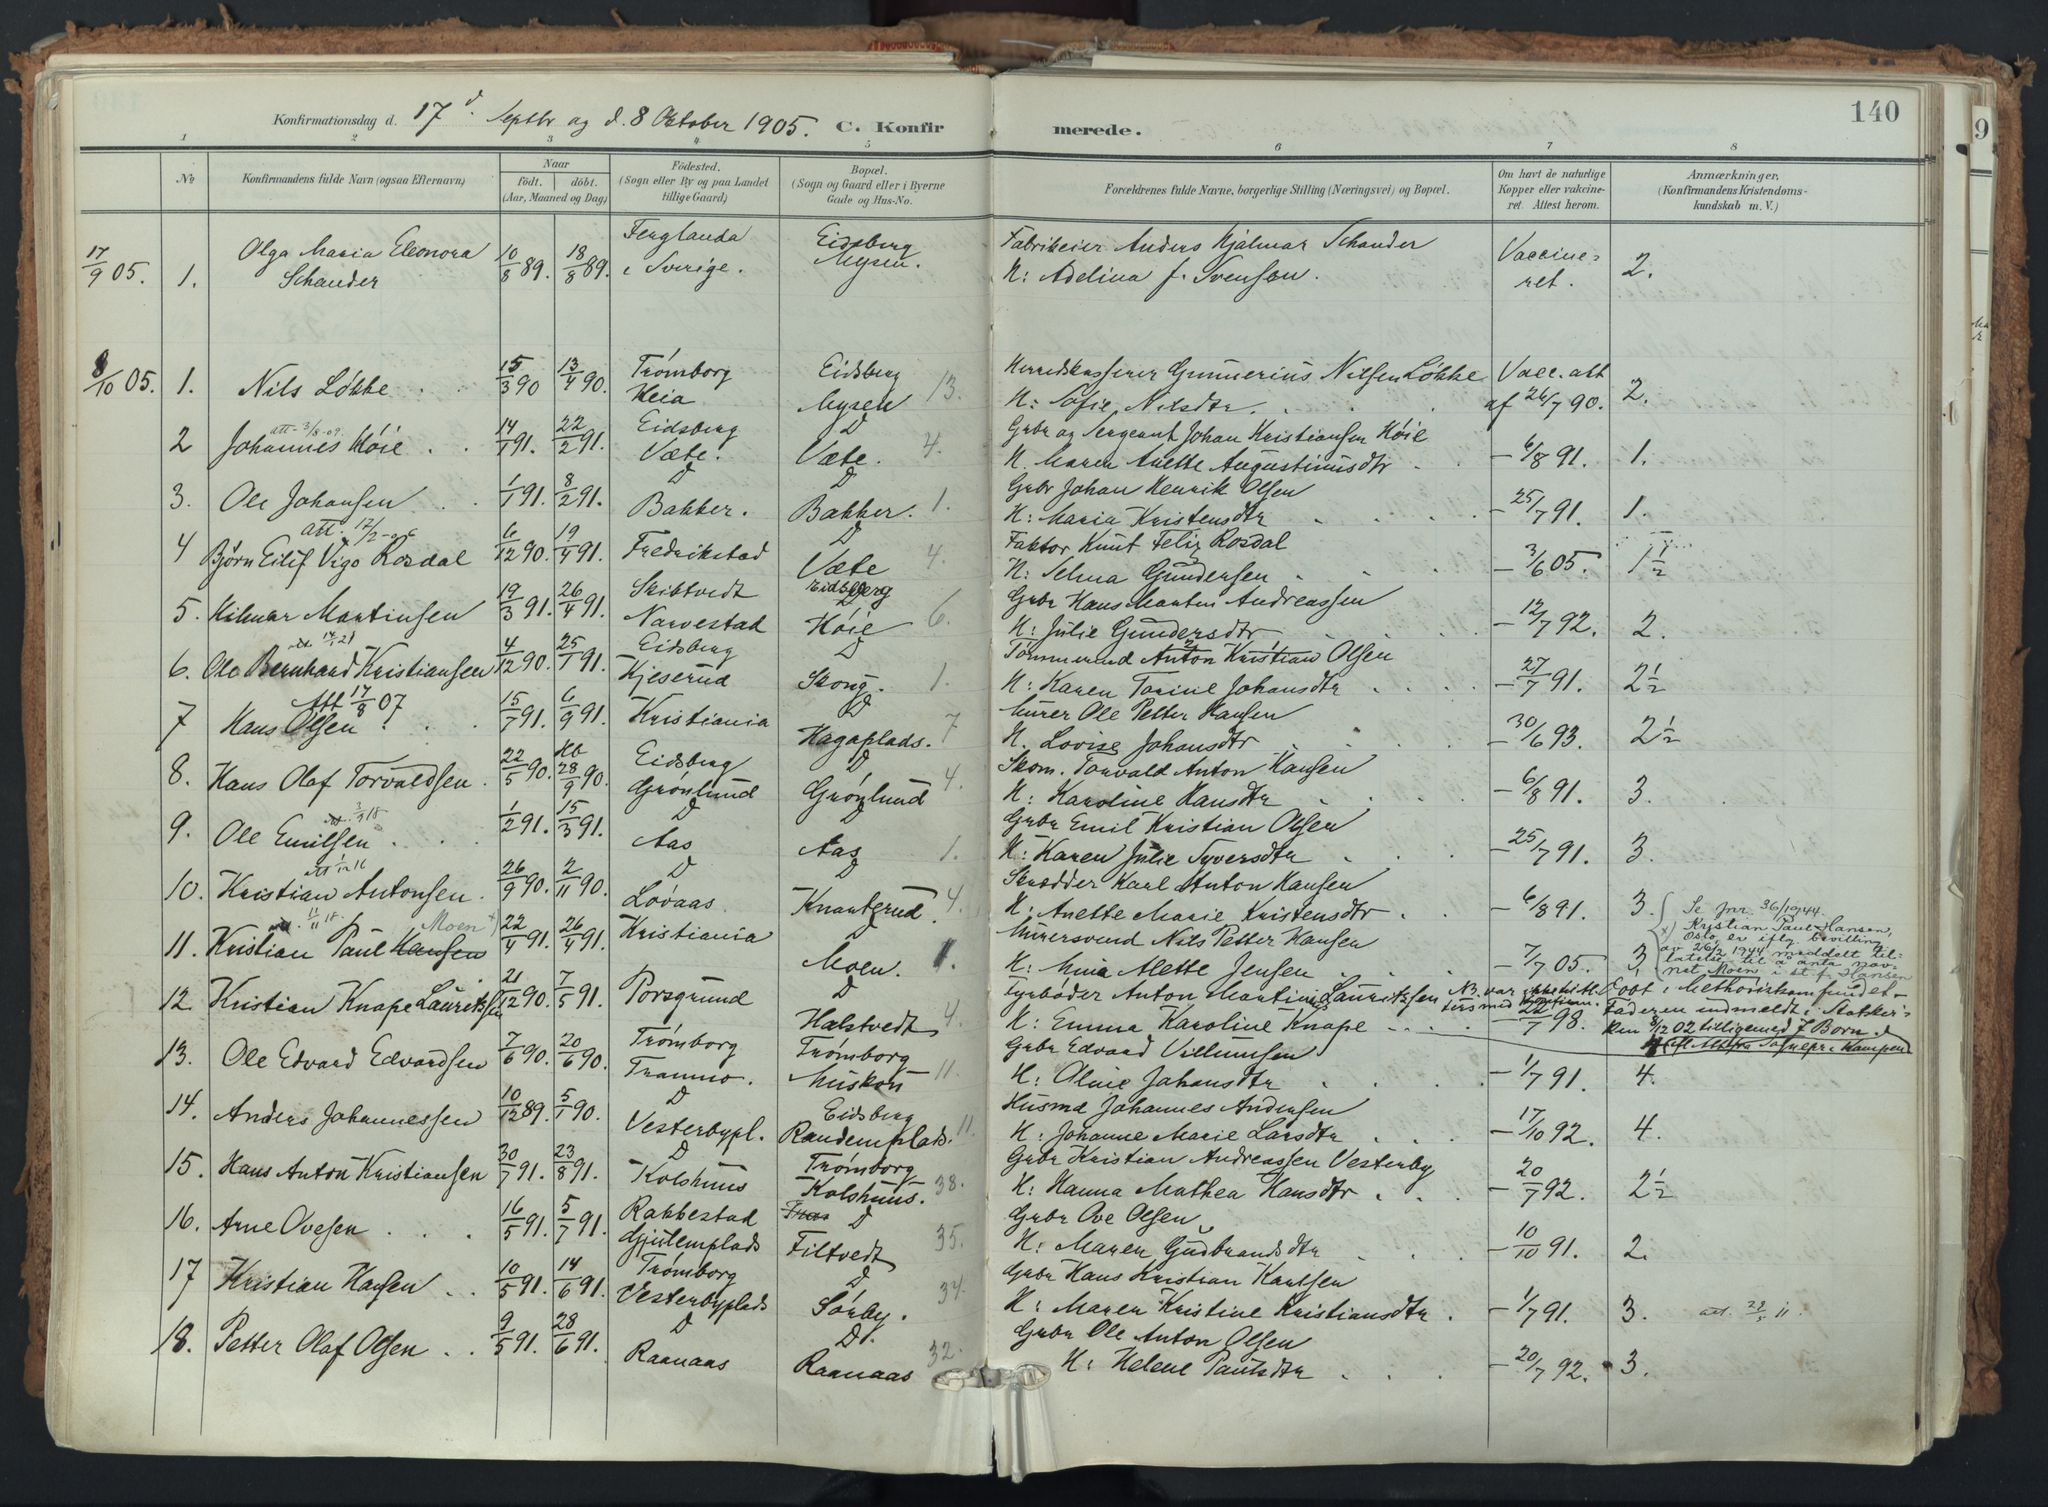 140
Konfirmationsdag d. 17d Septbr og d. 8 Oktober 1905. C. Konfirmerede.
1 2 3 4 5 6 7 8
No
Konfirmandens fulde Navn (ogsaa Efternavn)
Naar
födt. döbt.
(Aar, Maaned og Dag)
Födested.
(Sogn eller By og paa Landet
tillige Gaard)
Bopæl.
(Sogn og Gaard eller i Byerne
Gade og Hus-No.
Forældrenes fulde Navne, borgerlige Stilling (Næringsvei) og Bopæl.
Om havt de naturlige
Kopper eller vakcine-
ret. Attest herom.
Anmærkninger.
(Konfirmandens Kristendoms-
kundskab m. V.)
17/9 05. 1. Olga Maria Eleonora
Schander
10/8 89. 18/8 89.
Ferglanda
i Sverige.
Eidsberg
Mysen.
Fabrikeier Anders Hjalmar Schander
H: Adelina f. Svenson.
Vaccine-
ret.
2.
8/10 05. 1. Nils Løkke
15/3 90 13/4 90.
Trømborg
Heia
Eidsberg
Mysen 13.
Herredskasserer Gunnerius Nilsen Løkke
H: Sofie Nilsdtr.
Vacc. att
af 26/7 90.
2.
att. 3/8-09.
2 Johannes Høie
14/1 91. 22/2 91.
Eidsberg
Væte.
D
Væte. 4.
Grbr og Sergeant Johan Kristiansen Høie
H. Maren Anette Augustinusdtr
- 6/8 91. 1.
3. Ole Johansen
1/1 91. 8/2 91.
D
Bakker.
D
Bakker. 1.
Grbr Johan Henrik Olsen
H: Maria Kristensdtr
- 25/7 91. 1.
att. 17/2-06
4 Bjørn Eilif Vigo Rosdal
6/12 90. 19/4 91.
Fredrikstad
D
Væte 4.
Faktor Knut Felix Rosdal
H: Selma Gundersen
- 3/6 05. 1 1/2
5. Hilmar Martinsen
19/3 91. 26/4 91.
Skibtvedt
Narvestad
Eidsberg
Høie 6.
Grbr Hans Morten Andreassen
H: Julie Gundersdtr
- 12/7 92. 2.
6. Ole Bernhard Kristiansen
4/12 90. 25/1 91.
Eidsberg
Kjeserud
D
Skong. 1.
Tømmermd Anton Kristian Olsen
H: Karen Torine Johansdtr
- 27/7 91. 2 1/2
Att 17/8 07
7 Hans Olsen
15/7 91. 6/9 91.
Kristiania
D
Hagaplads. 7
Murer Ole Petter Hansen
H. Lovise Johansdtr
- 30/6 93. 2 1/2
8. Hans Olaf Torvaldsen
22/5 90. 28/9 90.
Eidsberg
Grønlund
D
Grønlund 4.
Skom. Torvald Anton Hansen
H: Karoline Hansdtr
- 6/8 91. 3.
9. Ole Emilsen
1/2 91. 15/3 91.
D
Aas
D
Aas 1.
Grbr Emil Kristian Olsen
H: Karen Julie Syversdtr
- 25/7 91. 3.
10. Kristian Antonsen
26/9 90. 2/11 90.
D
Løvaas
D
Knartgrud 4.
Skrædder Karl Anton Hansen
H. Anette Marie Kristensdtr
- 6/8 91. 3.
Moen x
11. Kristian Paul Hansen
22/4 91. 26/4 91.
Kristiania
D
Moen. 1.
Murersvend Nils Petter Hansen
H: Mina Alette Jensen
- 7/7 05. 3.
Se jnr. 36/1944.
x) Kristian Paul Hansen,
Oslo, er iflg. bevilling
av 26/2 1944 meddelt til-
latelse til å anta nav-
net Moen i st. f. Hansen
12. Kristian Knape Lauritzsen
21/12 90. 7/5 91.
Porsgrund
D
Halstvedt 4.
Fyrbøder Anton Martin Lauritzsen
H: Emma Karoline Knape
- 22/7 98.
Døbt i Methodistsamfundet -
Faderen indmeldt i Statskir-
ken 8/12 02 tilligemed 7 Børn
13. Ole Edvard Edvardsen
7/6 90. 20/6 90.
Trømborg
Tramno.
Trømborg
Muskou 11.
Grbr Edvard Villumsen
H: Oline Johansdtr
- 1/7 91. 4.
14. Anders Johannessen
10/12 89. 5/1 90.
D
Vesterbypl.
Eidsberg
Raudemplads. 11.
Husmd Johannes Andersen
H: Johanne Marie Larsdtr
- 17/10 92. 4.
15. Hans Anton Kristiansen
30/7 91. 23/8 91.
D
Kolshuus
Trømborg
Kolshuus. 38.
Grbr Kristian Andreassen Vesterby
H: Hanna Mathea Hansdtr
- 20/7 92. 2 1/2
16. Arne Ovesen
16/5 91. 5/7 91.
Rakkestad
Gjulemplads
D
Filtvedt 35.
Grbr Ove Olsen
H: Maren Gudbrandsdtr
- 10/10 91. 2.
17 Kristian Hansen
10/5 91. 14/6 91.
Trømborg
Vesterbyplads
D
Sørby. 34.
Grbr Hans Kristian Karlsen
H: Maren Kristine Kristiansdtr.
- 1/7 91. 3. att. 23/5 11.
18. Petter Olaf Olsen
9/5 91. 28/6 91.
D
Raanaas
D.
Raanaas 32.
Grbr Ole Anton Olsen
H: Helene Paulsdtr
- 20/7 92. 3.